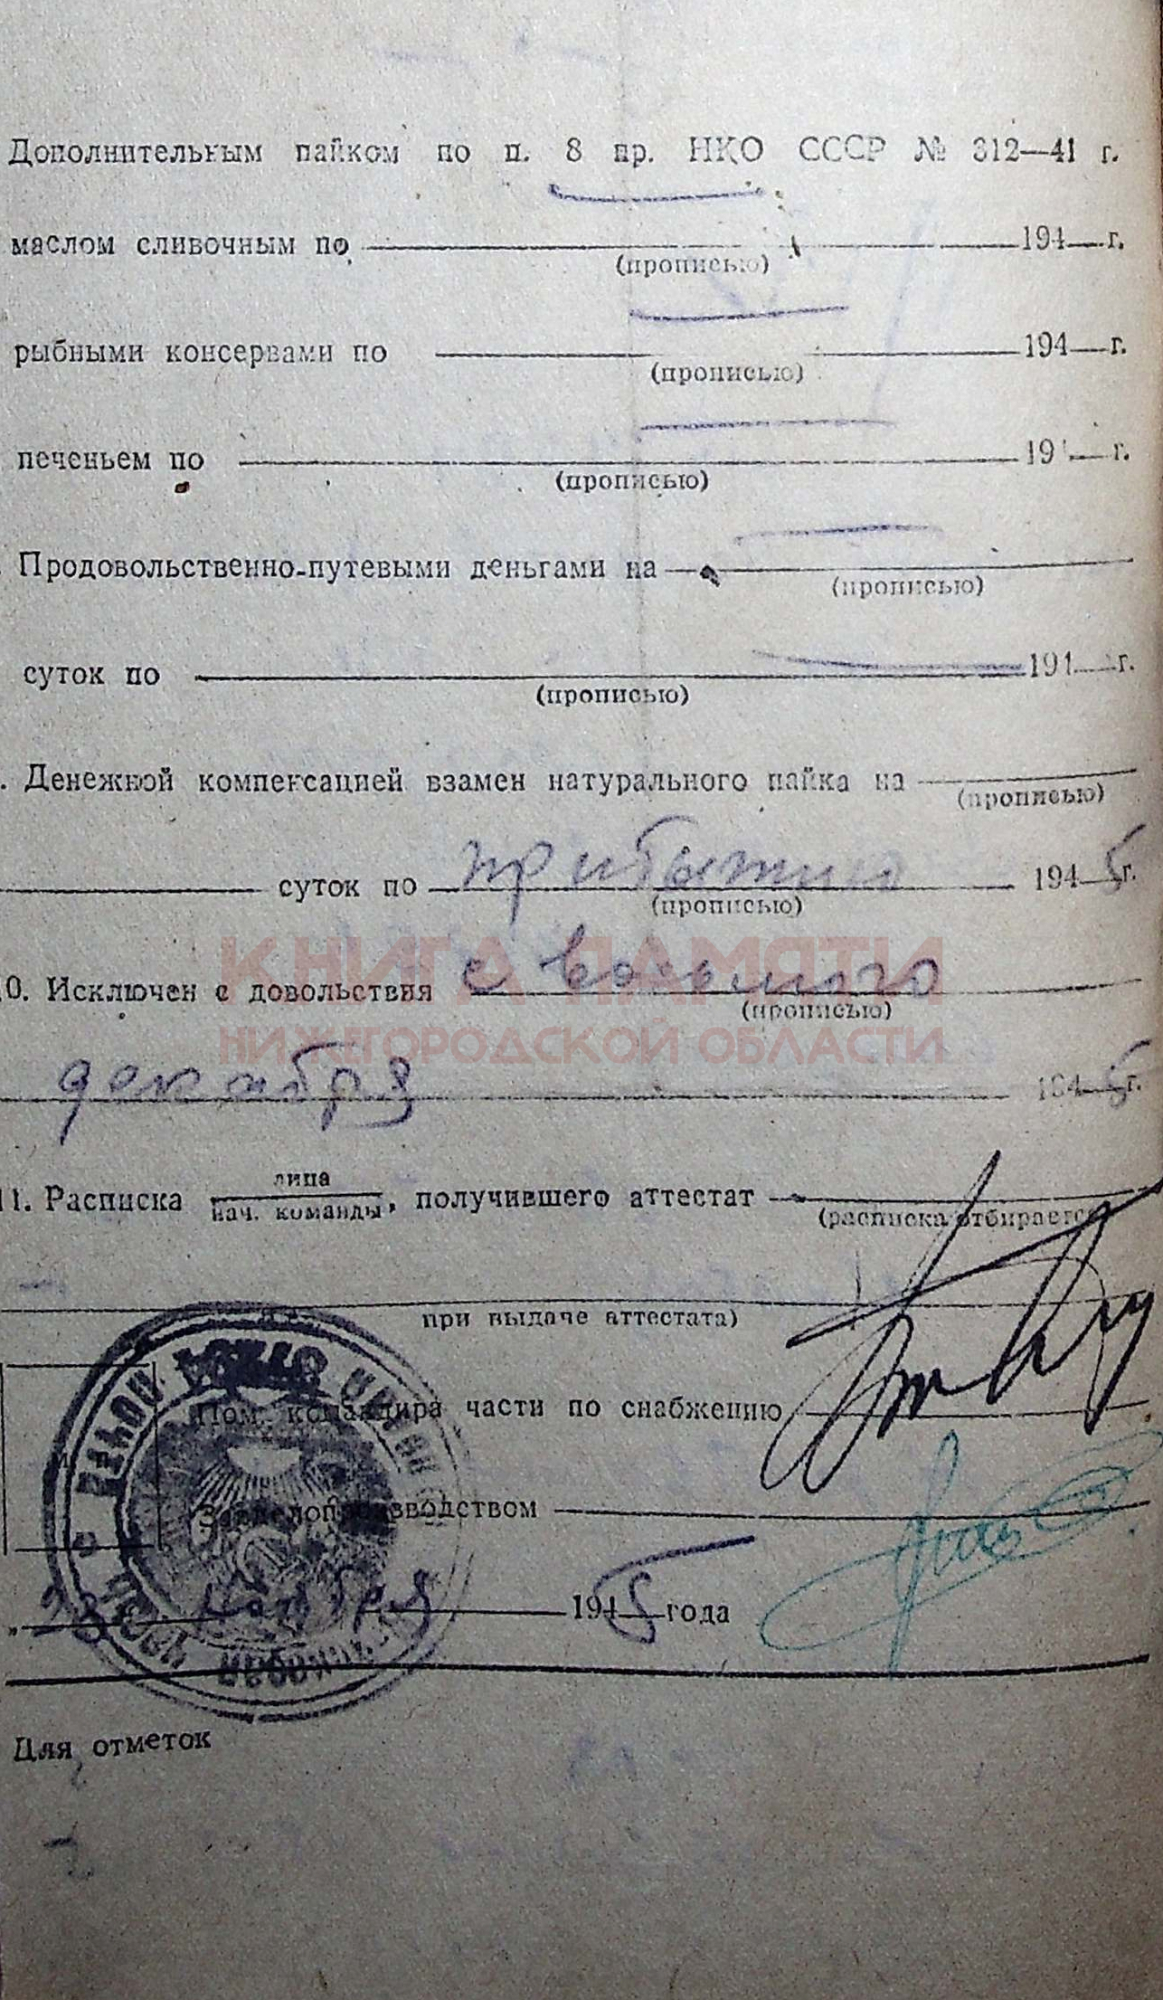 Дополнительным пайком по п. 8 пр. НКО СССР № 312—41 г.
маслом сливочным по 194 г.
(прописью)
рыбными консервами по 194 г.
(прописью)
печеньем по 19 г.
(прописью)
Продовольственно-путевыми деньгами на
(прописью)
суток по 194 г.
(прописью)
. Денежной компенсацией взамен натурального пайка на
(прописью)
суток по прибытию 1945 г.
(прописью)
КНИГА ПАМЯТИ
0. Исключен с довольствия с восьмого
(прописью)
НИЖЕГОРОДСКОЙ ОБЛАСТИ
декабря 1945 г.
11. Расписка лица
нач. команды, получившего аттестат
(расписка отбирается
при выдаче аттестата)
Пом. командира части по снабжению
Зав. делопроизводством
„ ноября 1945 года
Для отметок